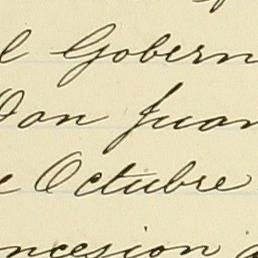 l Gobern
Don Juan
e Octubre
ncesion